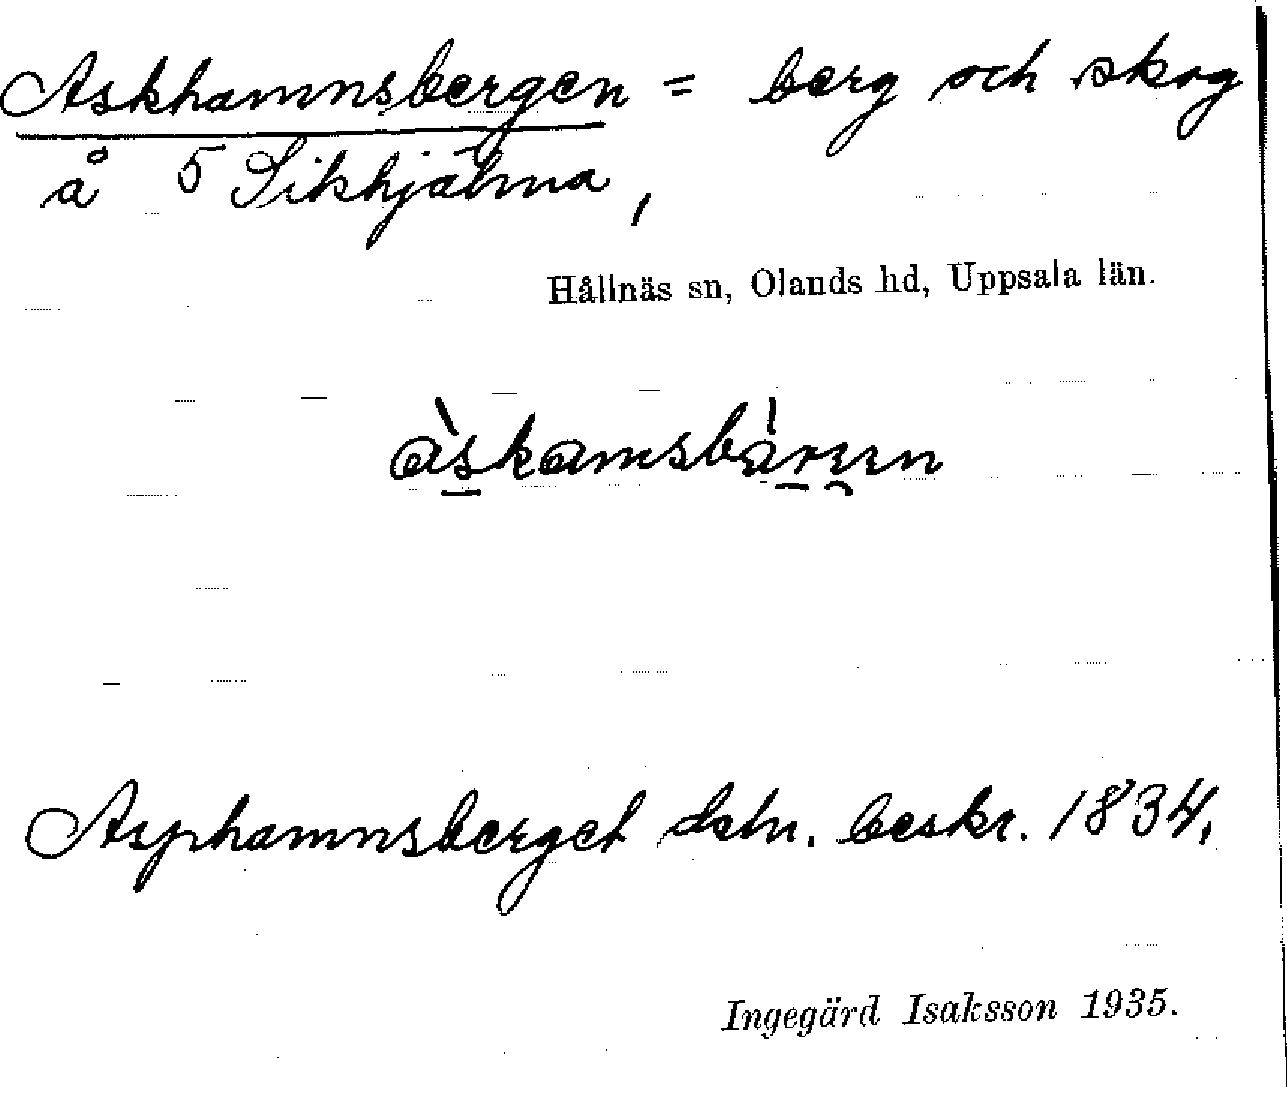 Askhamnsbergen = berg och skog
å 5 Sikhjälma,
Hållnäs sn, Olands hd, Uppsala län.
àskamsbàrɩɩn
Asphamnsberget dstn. beskr. 1834,
Ingegärd Isaksson 1935.